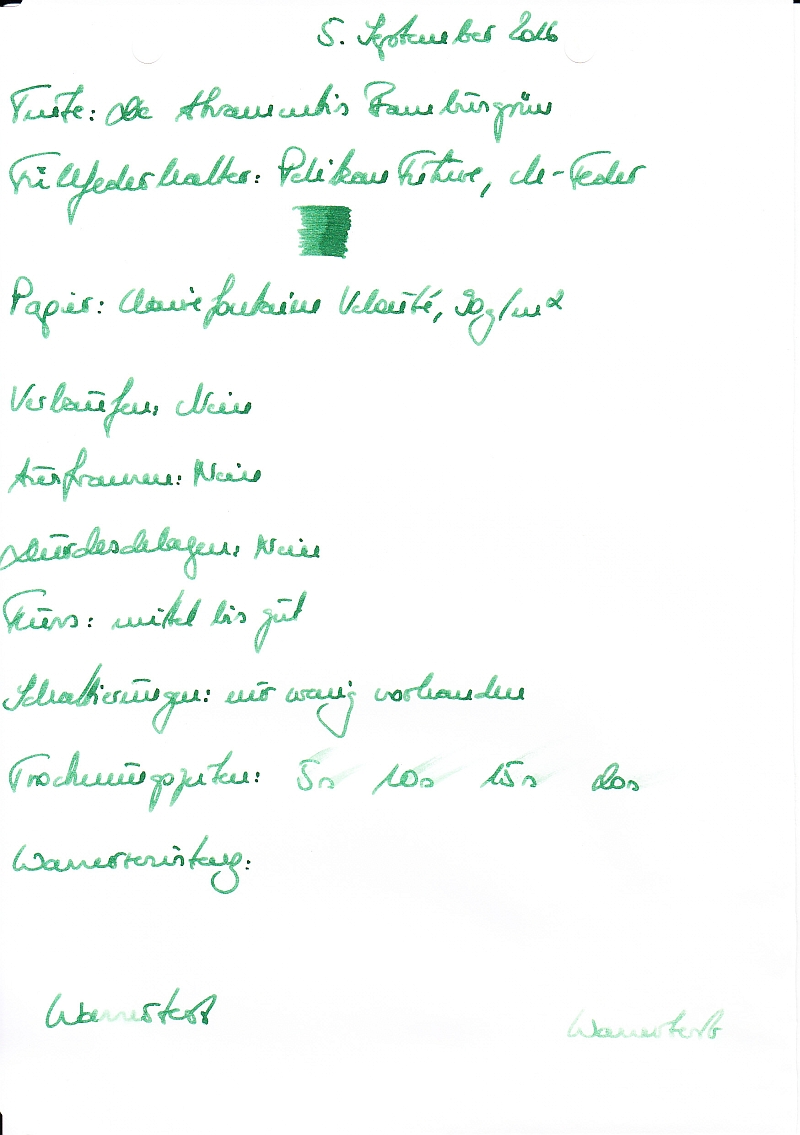 5. September 2016
Tinte: De Atramentis Bambusgrün
Füllfederhalter: Pelikan Future, M-Feder
Papier: Clairefontaine Velouté, 90g/m²
Verlaufen: Nein
Ausfransen: Nein
Durchschlagen: Nein
Fluss: mittel bis gut
Schattierungen: nur wenig vorhanden
Trocknungszeiten: 5s 10s 15s 20s
Wasserresistenz:
Wassertest Wassertest